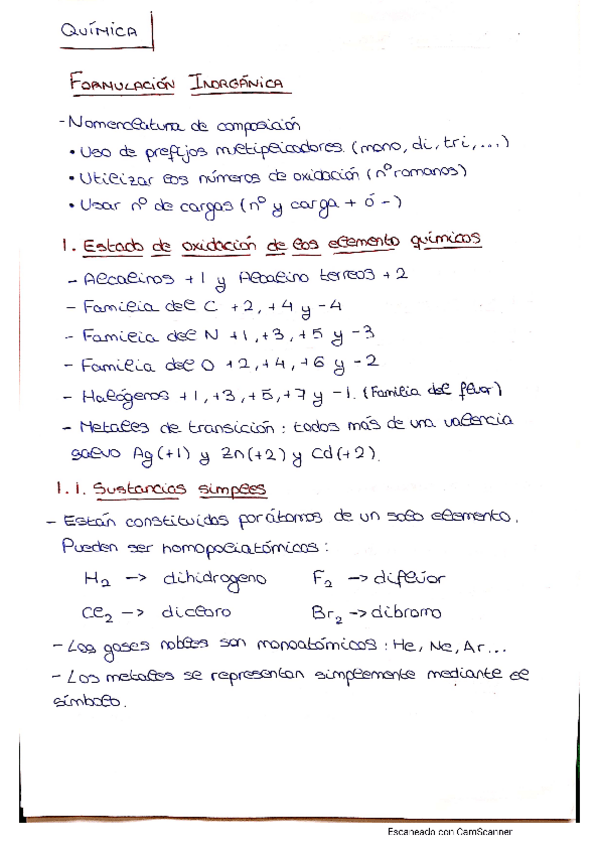 QUÍMICA
FORMULACIÓN INORGÁNICA
- Nomenclatura de composición
• Uso de prefijos multiplicadores. (mono, di, tri, ...)
• Utilizar los números de oxidación (nº romanos)
• Usar nº de cargas (nº y carga + ó -)
1. Estado de oxidación de los elemento químicos
- Alcalinos +1 y Alcalino terreos +2
- Familia del C +2, +4 y -4
- Familia del N +1, +3, +5 y -3
- Familia del O +2, +4, +6 y -2
- Halógenos +1, +3, +5, +7 y -1. (Familia del flúor)
- Metales de transición: todos más de una valencia
salvo Ag (+1) y Zn (+2) y Cd (+2).
1.1. Sustancias simples
- Están constituidas por átomos de un solo elemento.
Pueden ser homopoliatómicos:
H₂ -> dihidrogeno F₂ -> diflúor
Cl₂ -> dicloro Br₂ -> dibromo
- Los gases nobles son monoatómicos: He, Ne, Ar...
- Los metales se representan simplemente mediante el
símbolo.
Escaneado con CamScanner